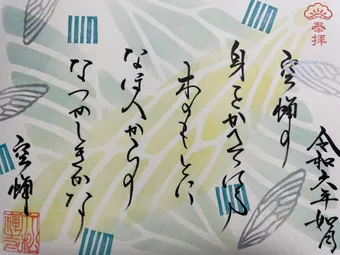 奉拝
令和六年如月
空蝉の
身をかへてける
木のもとに
なほ人からの
なつかしきかな
空蝉